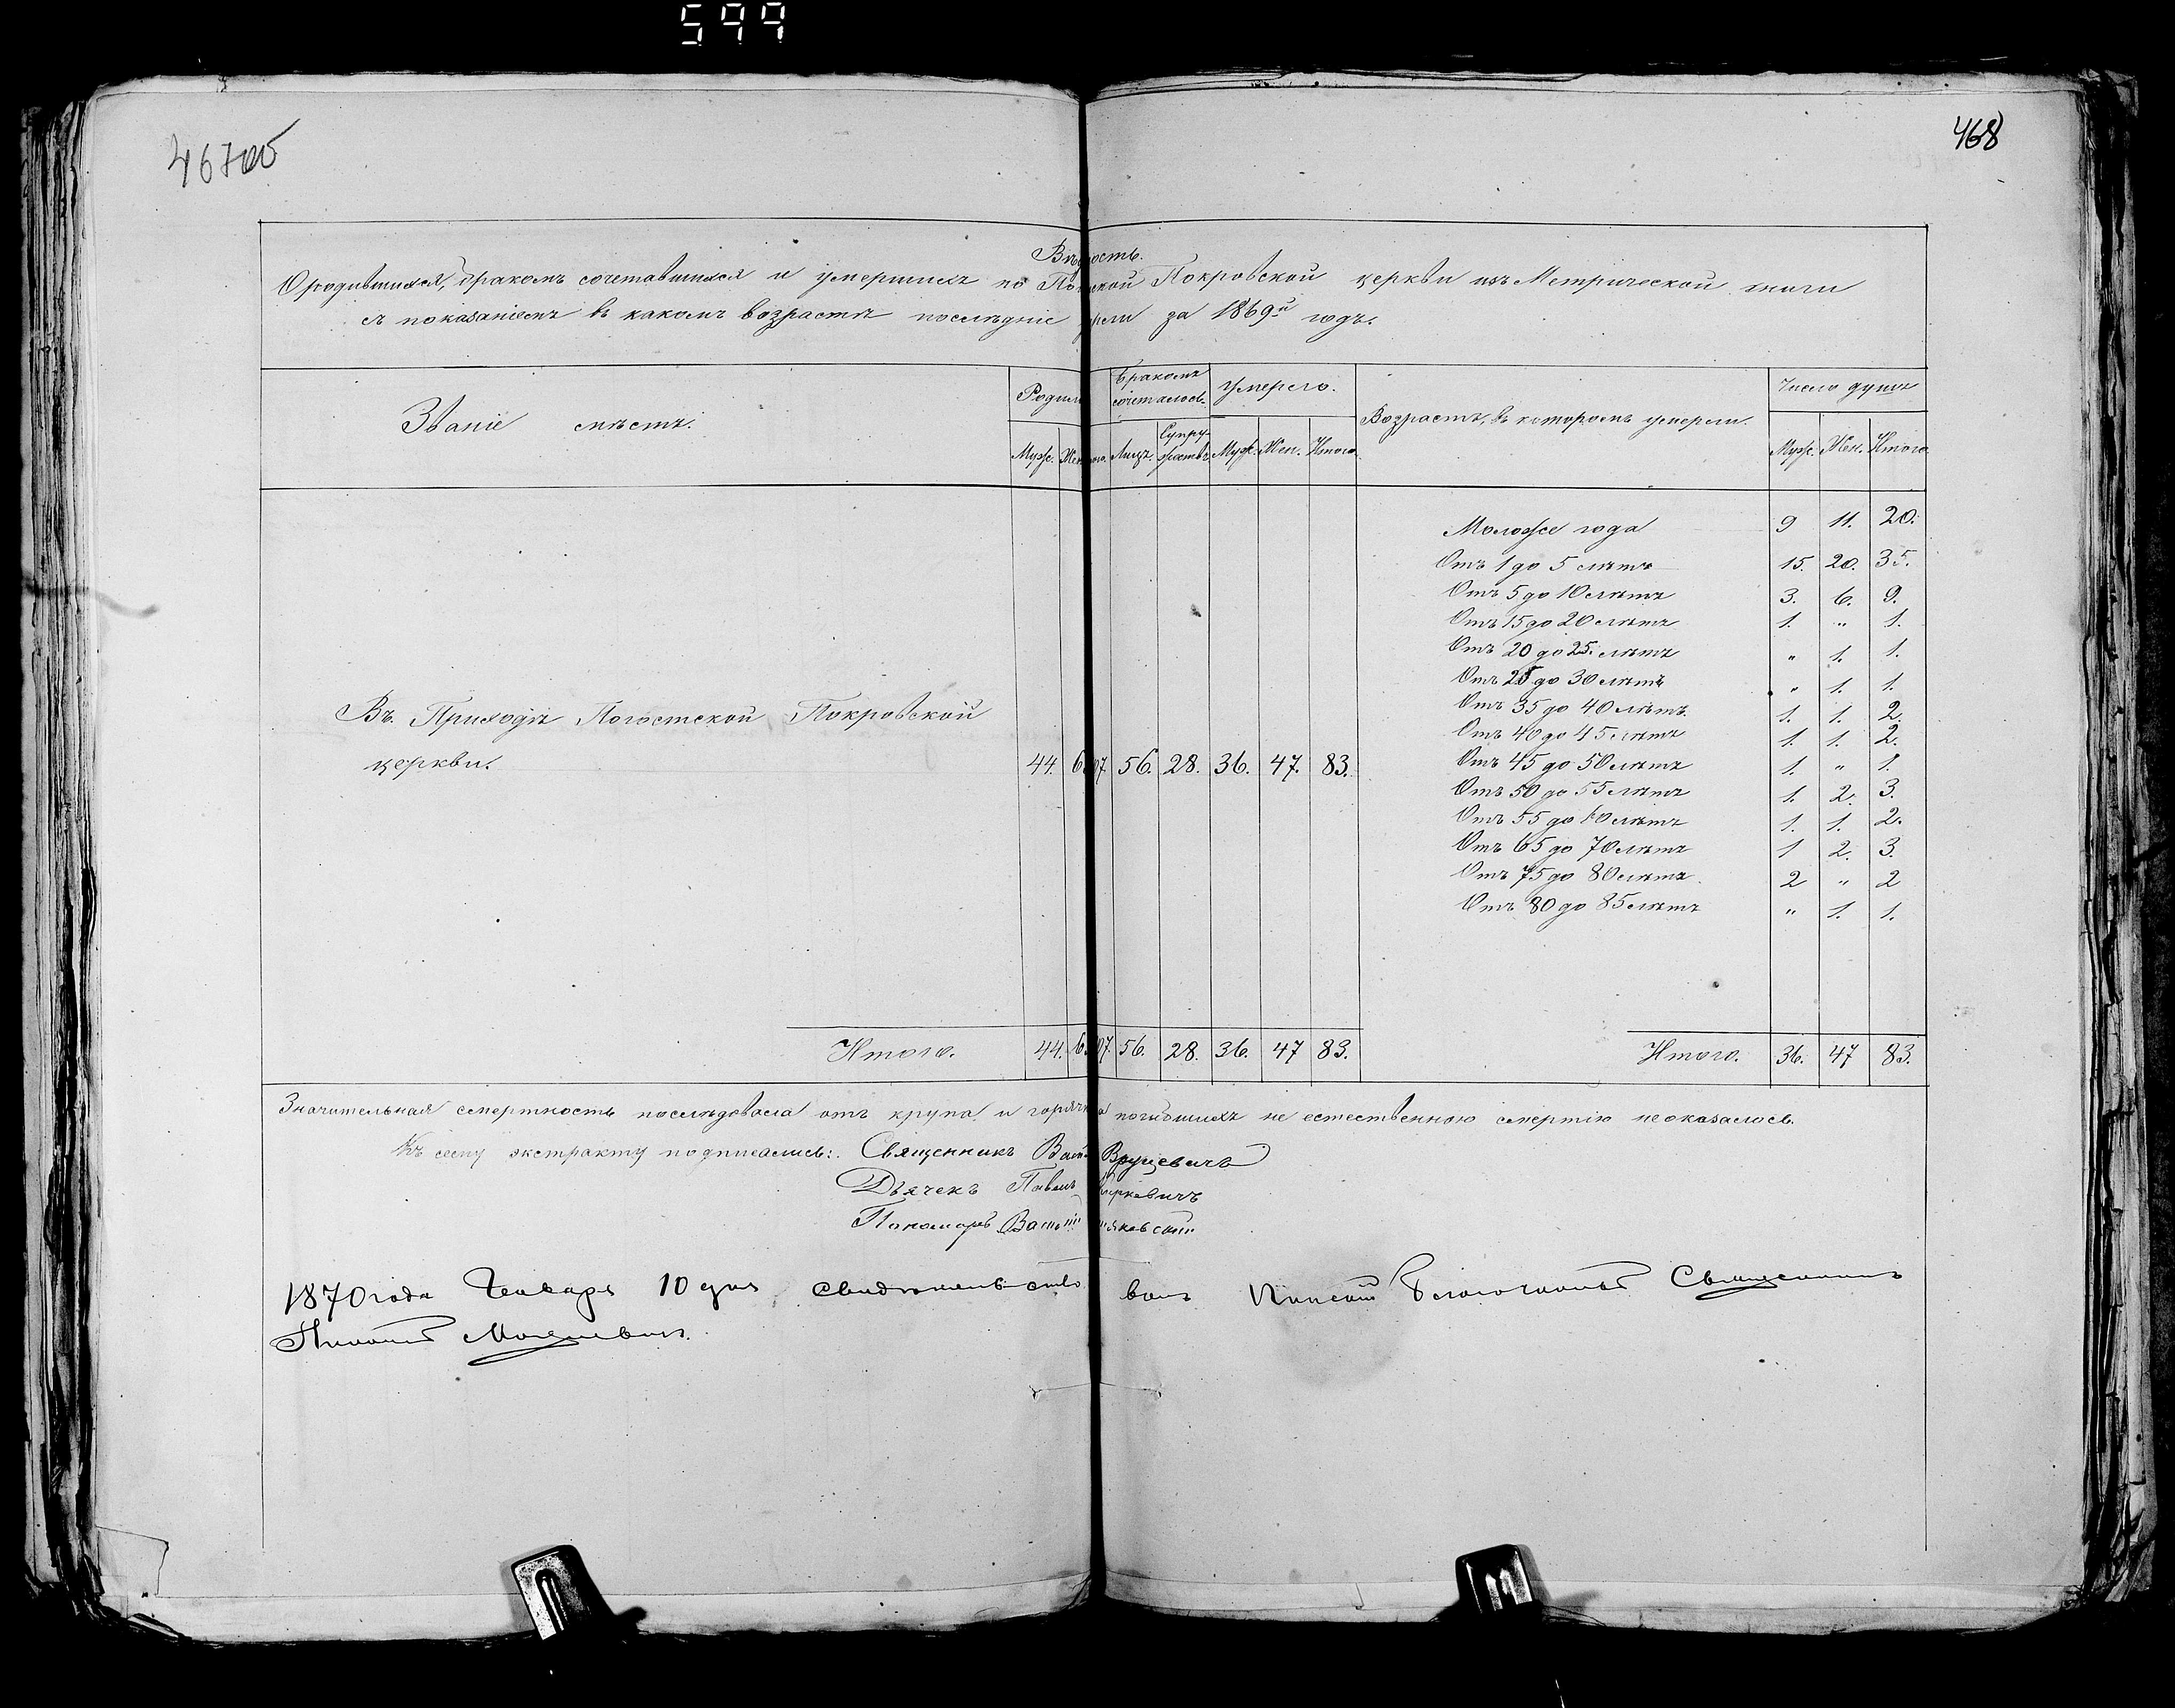 599
467об
468
Вѣдость.
О родившихся, бракомъ сочетавшихся и умершихъ по По ской Покровской церкви изъ Метрической книги
съ показаніемъ въ какомъ возрастѣ послѣдніе рли за 1869й годъ.
Званіе мѣстъ.
Родил
Бракомъ сочеталось.
Умерло.
Возрастъ, въ которомъ умерли.
Число душъ
Муж. Жен ого. Лицъ. Супружествъ Муж. Жен. Итого
Муж. Жен. Итого
Моложе года 9 11. 20.
Отъ 1 до 5 лѣтъ 15. 20. 35.
Отъ 5 до 10 лѣтъ 3. 6. 9.
Отъ 15 до 20 лѣтъ 1. " 1.
Отъ 20 до 25. лѣтъ " 1. 1.
Отъ 25 до 30 лѣтъ " 1. 1.
Отъ 35 до 40 лѣтъ. 1. 1. 2.
Отъ 40 до 45 лѣтъ 1. 1. 2.
Отъ 45 до 50 лѣтъ 1. " 1.
Отъ 50 до 55 лѣтъ 1. 2. 3.
Отъ 55 до 60 лѣтъ 1. 1. 2.
Отъ 65 до 70 лѣтъ 1 2. 3.
Отъ 75 до 80 лѣтъ 2 " 2
Отъ 80 до 85 лѣтъ " 1. 1.
Въ Приходѣ Погостской Покровской
церкви. 44. 6 07. 56. 28. 36. 47. 83.
Итого. 44. 6 07. 56. 28. 36. 47 83.
Итого. 36. 47 83.
Значительная смертность послѣдовала отъ крупа и горяч а погибшихъ не естественною смертію не оказалось.
Къ сему экстракту подписались: Священникъ Вруцевичъ
Дьячекъ Павелъ
Пономарь
1870 года Генваря 10 дня свидѣтельство валъ Благочинный Священникъ